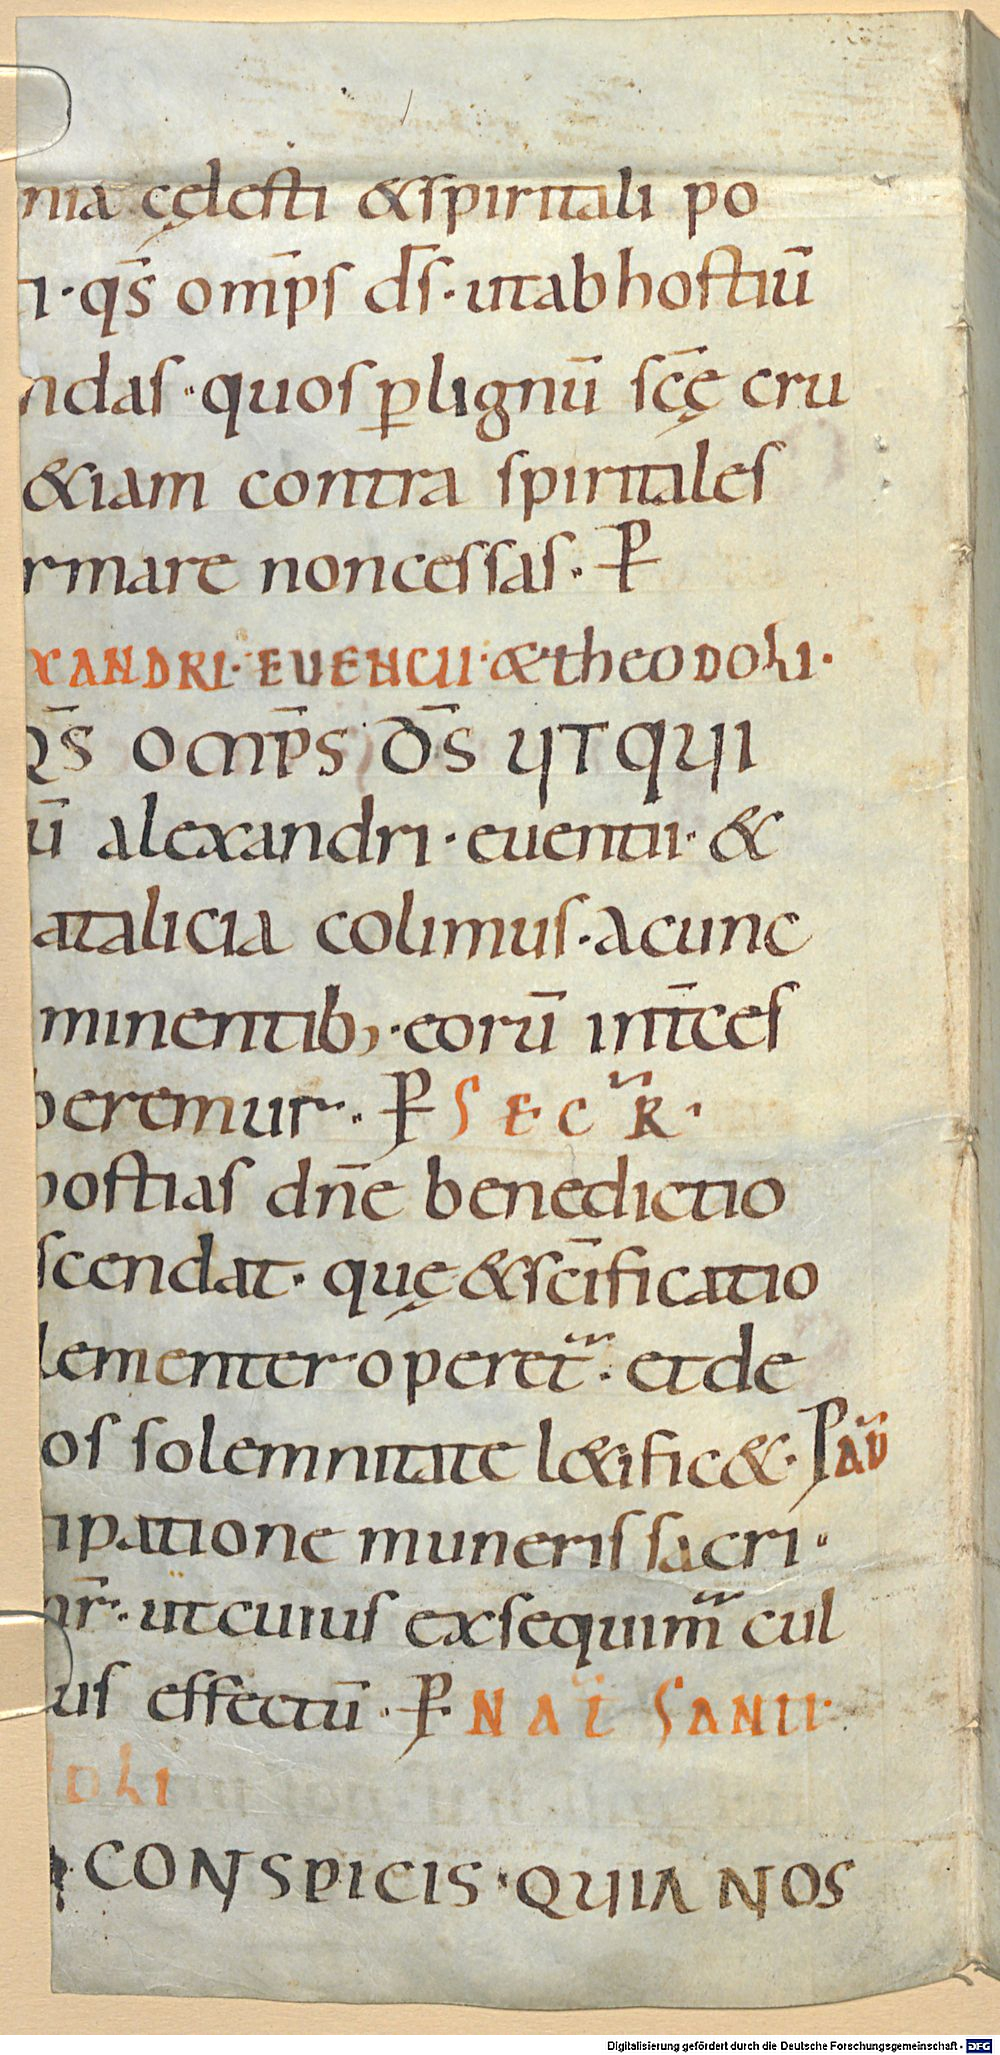 nia cęlesti & spiritali po
i · qs̄ om̄ps ds̄ · ut ab hostiū
ndas · quos ꝑ lignū sc̄ę cru
&iam contra spiritales
rmare non cessas · P
XANDRI · EUENCII · & theodoli ·
Qs̄ OM̄PS DS̄ UT QUI
ū alexandri · euentii · &
atalicia colimus · a cunc
minentib; · eorū int̄ces
beremur · P SECR ·
hostias dn̄e benedictio
scendat · quę & sc̄ificatio
lementer operet̄ · et de
os solemnitate l&ific& · P AD
ipatione muneris sacri ·
r̄ · ut cuius exsequim̄ cul
us effectū · P NAT SANTI ·
OLI
CONSPICIS · QUIA NOS
Digitalisierung gefördert durch die Deutsche Forschungsgemeinschaft - DFG